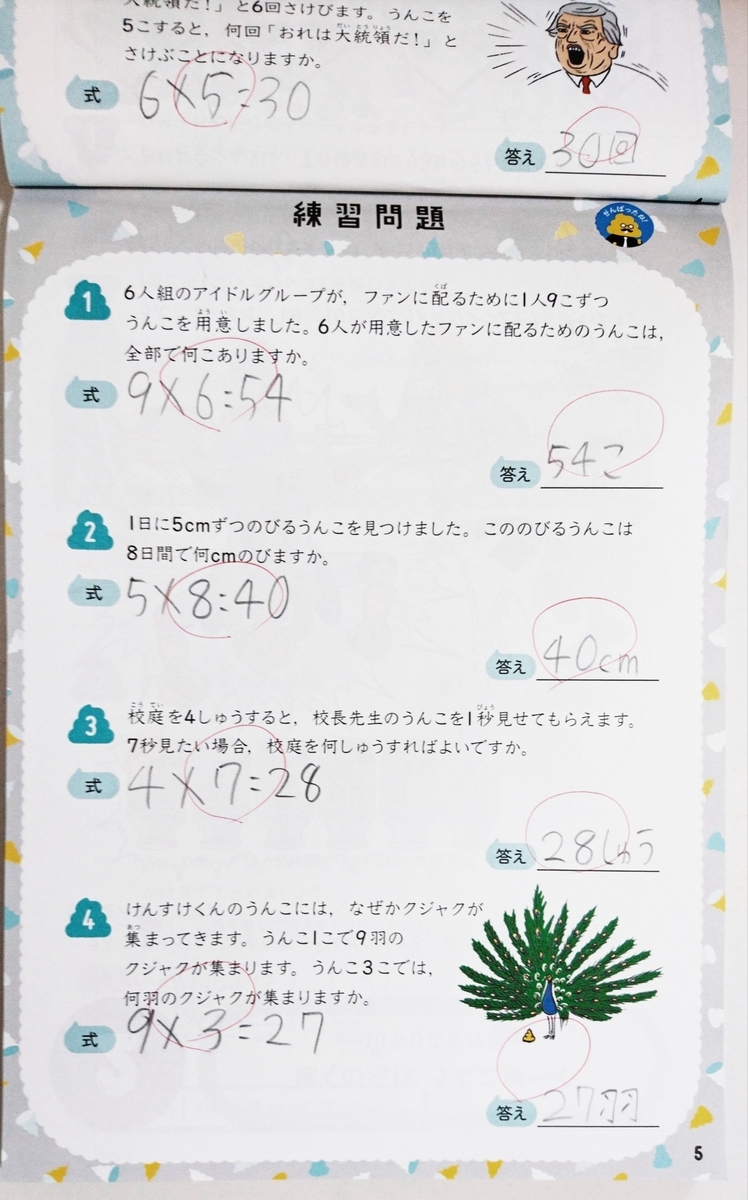 大統領だ！」と6回さけびます。うんこを
5こすると，何回「おれは大統領だ！」と
さけぶことになりますか。
式 6×5=30
答え 30回
練習問題
がんばったね!
1 6人組のアイドルグループが，ファンに配るために1人9こずつ
うんこを用意しました。6人が用意したファンに配るためのうんこは，
全部で何こありますか。
式 9×6=54
答え 54こ
2 1日に5cmずつのびるうんこを見つけました。こののびるうんこは
8日間で何cmのびますか。
式 5×8=40
答え 40cm
3 校庭を4しゅうすると，校長先生のうんこを1秒見せてもらえます。
7秒見たい場合，校庭を何しゅうすればよいですか。
式 4×7=28
答え 28しゅう
4 けんすけくんのうんこには，なぜかクジャクが
集まってきます。うんこ1こで9羽の
クジャクが集まります。うんこ3こでは，
何羽のクジャクが集まりますか。
式 9×3=27
答え 27羽
5